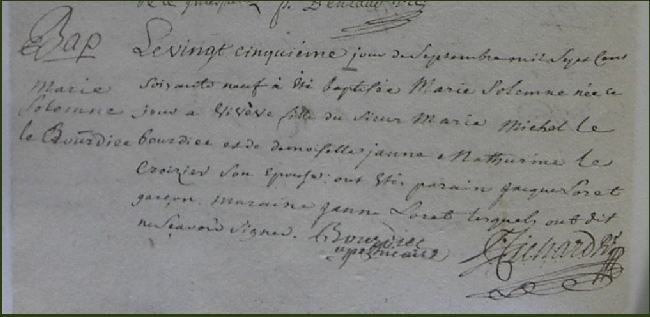 Bap
Marie
Solemne
le Bourdiec
Le vingt cinquieme jour de Septembre mil Sept Cent
Soixante neuf à été baptisée Marie Solemne née ce
jour a fille du Sieur Marie Michel le
bourdiec et de demoiselle janne Mathurine le
Croizier Son Epouse: ont étés parain jacques Loret
garçon. maraine janne Loret lesquels ont dit
ne Scavoir Signer. Bourdiec